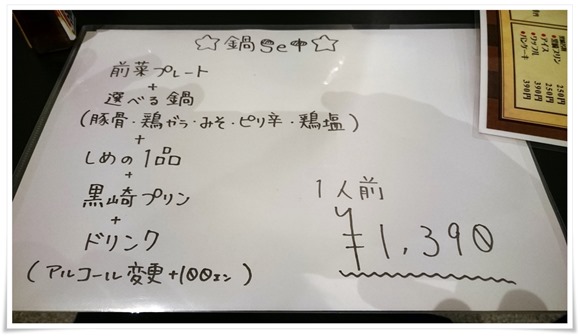 ☆鍋Set☆
前菜プレート
+
選べる鍋
(豚骨・鶏ガラ・みそ・ピリ辛・鶏塩)
+
しめの1品
+
黒崎プリン
+
ドリンク
(アルコール変更+100エン)
1人前
¥1,390
250円
アイス 250円
ワッフル 390円
パンケーキ 390円